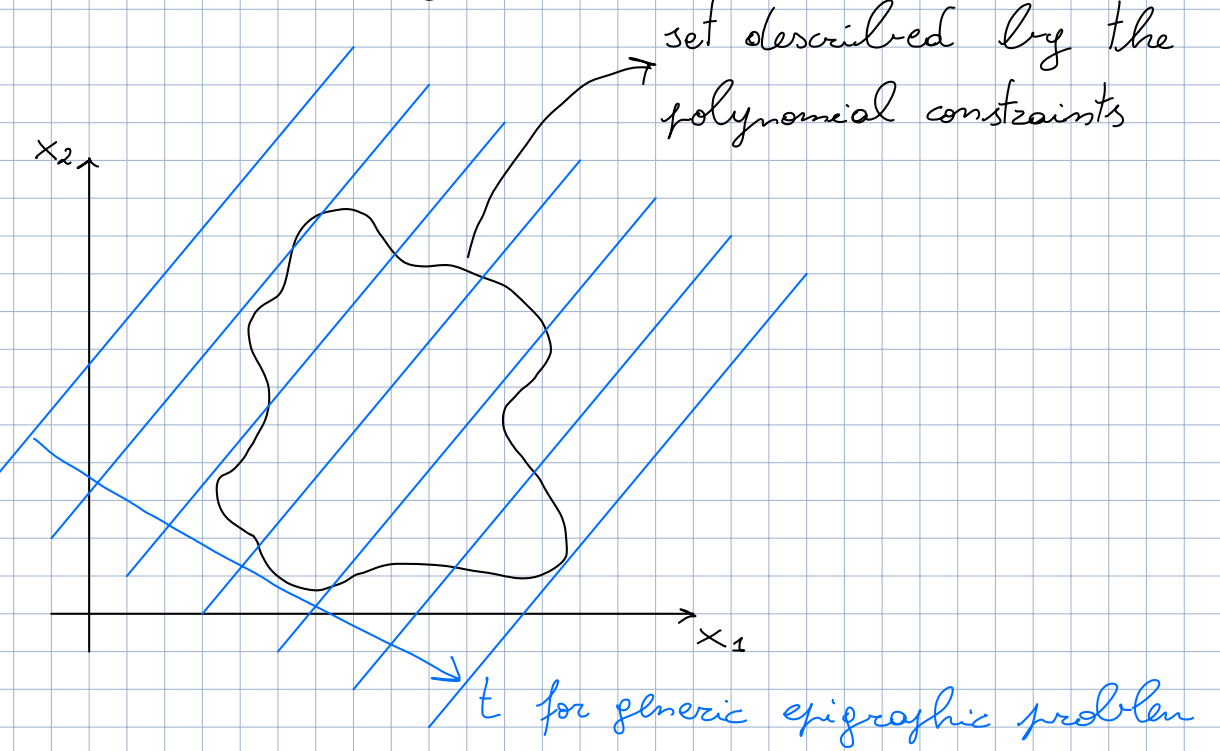 set described by the
polynomial constraints
x2
x1
t for generic epigraphic problem